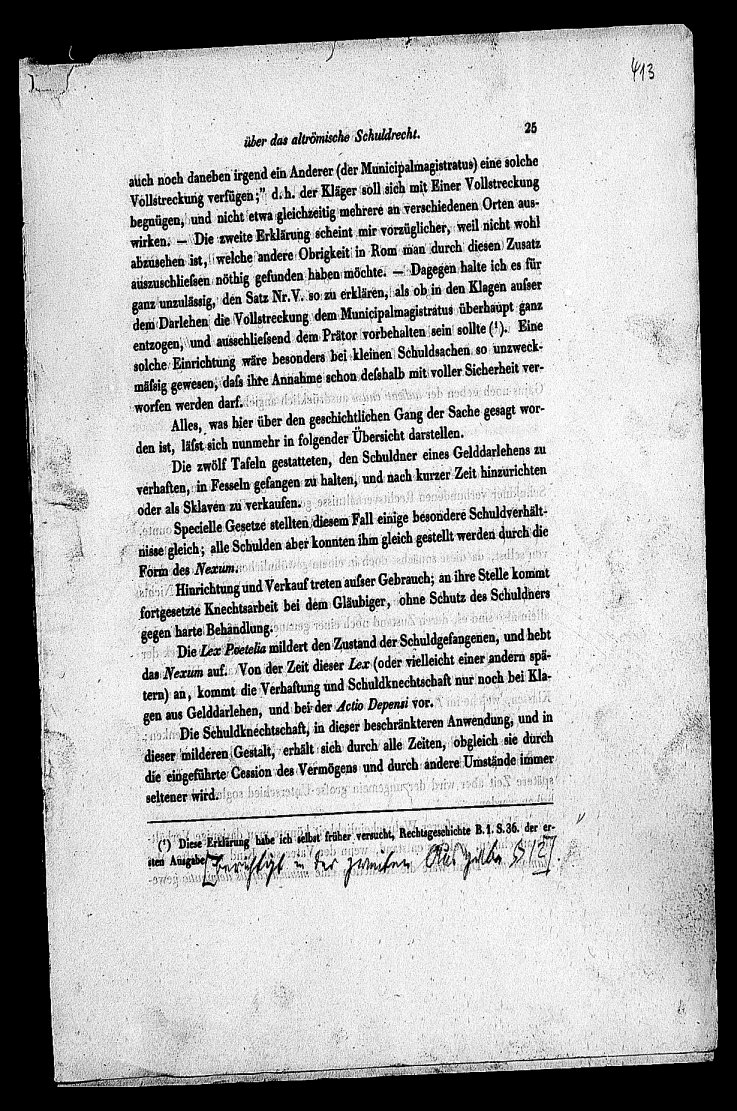 413
über das altrömische Schuldrecht. 25
auch noch daneben irgend ein Anderer (der Municipalmagistratus) eine solche
Vollstreckung verfügen;” d. h. der Kläger soll sich mit Einer Vollstreckung
begnügen, und nicht etwa gleichzeitig mehrere an verschiedenen Orten aus-
wirken. — Die zweite Erklärung scheint mir vorzüglicher, weil nicht wohl
abzusehen ist, welche andere Obrigkeit in Rom man durch diesen Zusatz
auszuschliefsen nöthig gefunden haben möchte. — Dagegen halte ich es für
ganz unzulässig, den Satz Nr. V. so zu erklären, als ob in den Klagen aufser
dem Darlehen die Vollstreckung dem Municipalmagistratus überhaupt ganz
entzogen, und ausschliefsend dem Prätor vorbehalten sein sollte (¹). Eine
solche Einrichtung wäre besonders bei kleinen Schuldsachen so unzweck-
mäfsig gewesen, dafs ihre Annahme schon defshalb mit voller Sicherheit ver-
worfen werden darf.
Alles, was hier über den geschichtlichen Gang der Sache gesagt wor-
den ist, läfst sich nunmehr in folgender Übersicht darstellen.
Die zwölf Tafeln gestatteten, den Schuldner eines Gelddarlehens zu
verhaften, in Fesseln gefangen zu halten, und nach kurzer Zeit hinzurichten
oder als Sklaven zu verkaufen.
Specielle Gesetze stellten diesem Fall einige besondere Schuldverhält-
nisse gleich; alle Schulden aber konnten ihm gleich gestellt werden durch die
Form des Nexum.
Hinrichtung und Verkauf treten aufser Gebrauch; an ihre Stelle kommt
fortgesetzte Knechtsarbeit bei dem Gläubiger, ohne Schutz des Schuldners
gegen harte Behandlung.
Die Lex Poetelia mildert den Zustand der Schuldgefangenen, und hebt
das Nexum auf. Von der Zeit dieser Lex (oder vielleicht einer andern spä-
tern) an, kommt die Verhaftung und Schuldknechtschaft nur noch bei Kla-
gen aus Gelddarlehen, und bei der Actio Depensi vor.
Die Schuldknechtschaft, in dieser beschränkteren Anwendung, und in
dieser milderen Gestalt, erhält sich durch alle Zeiten, obgleich sie durch
die eingeführte Cession des Vermögens und durch andere Umstände immer
seltener wird.
(¹) Diese Erklärung habe ich selbst früher versucht, Rechtsgeschichte B. 1. S. 36. der er-
sten Ausgabe [berichtigt in der zweiten Ausgabe